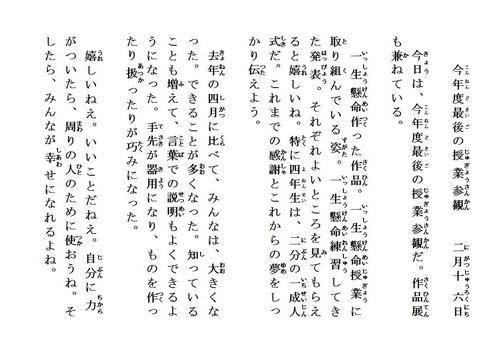 今年度最後の授業参観　　二月十六日
今日は、今年度最後の授業参観だ。作品展
も兼ねている。
一生懸命作った作品。一生懸命授業に
取り組んでいる姿。一生懸命練習してき
た発表。それぞれよいところを見てもらえ
ると嬉しいね。特に四年生は、二分の一成人
式だ。これまでの感謝とこれからの夢をしっ
かり伝えよう。
去年の四月に比べて、みんなは、大きくな
った。できることが多くなった。知っている
ことも増えて、言葉での説明もよくできるよ
うになった。手先が器用になり、ものを作っ
たり扱ったりが巧みになった。
嬉しいねえ。いいことだねえ。自分に力
がついたら、周りの人のために使おうね。そ
したら、みんなが幸せになれるよね。